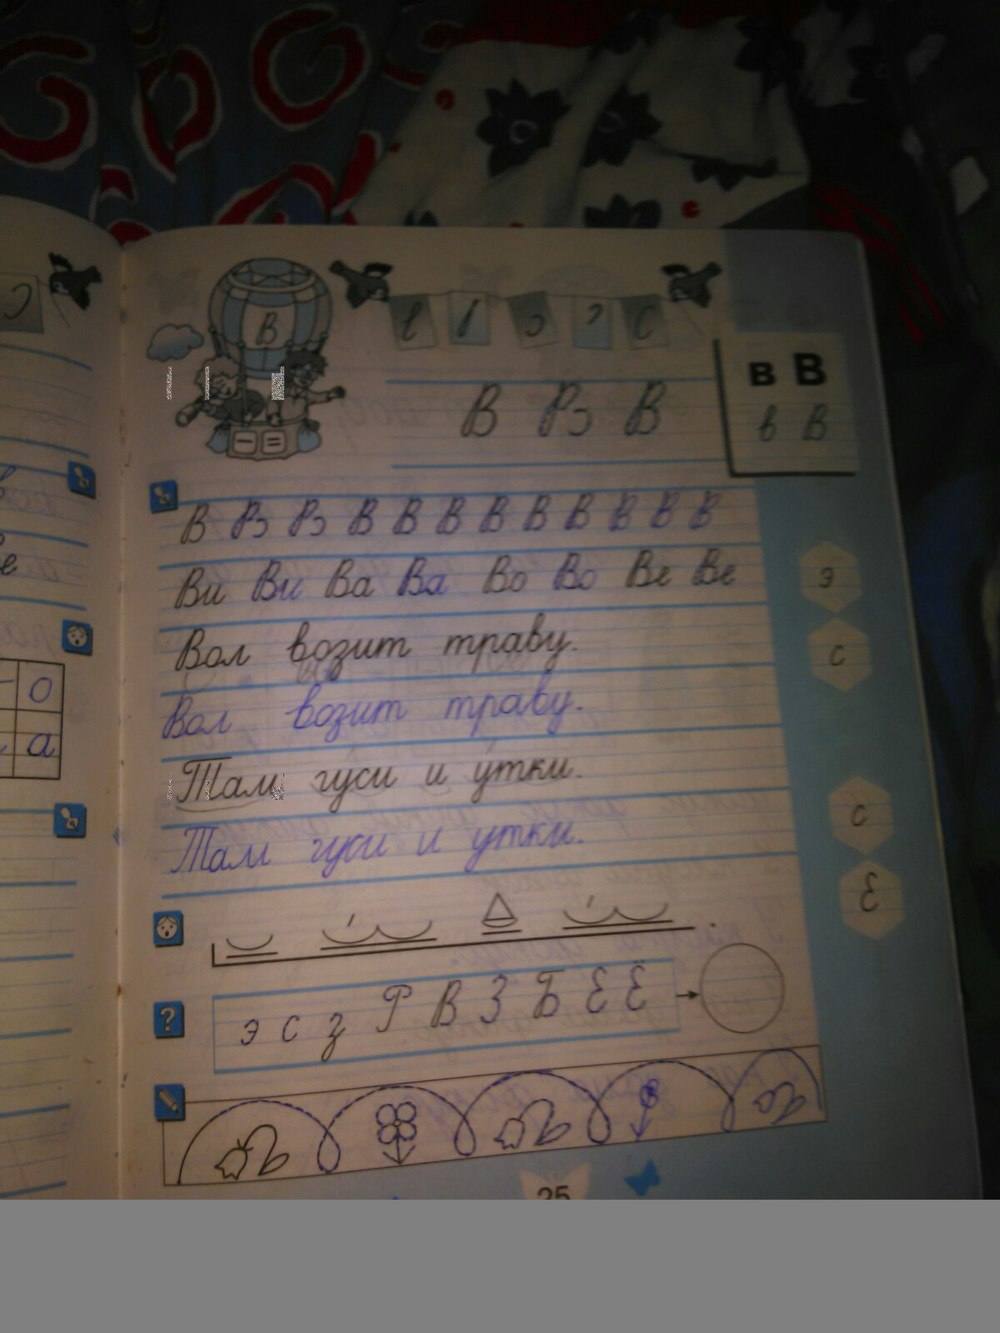 В
в В
в В
В В
В В В В В В В В В В
Ви Ви Ва Ва Во Во Ве Ве
э
с
Вол возит траву.
Вол возит траву.
о
а
Там гуси и утки.
Там гуси и утки.
с
Е
?
э с з Р В З Б Е Ё
25